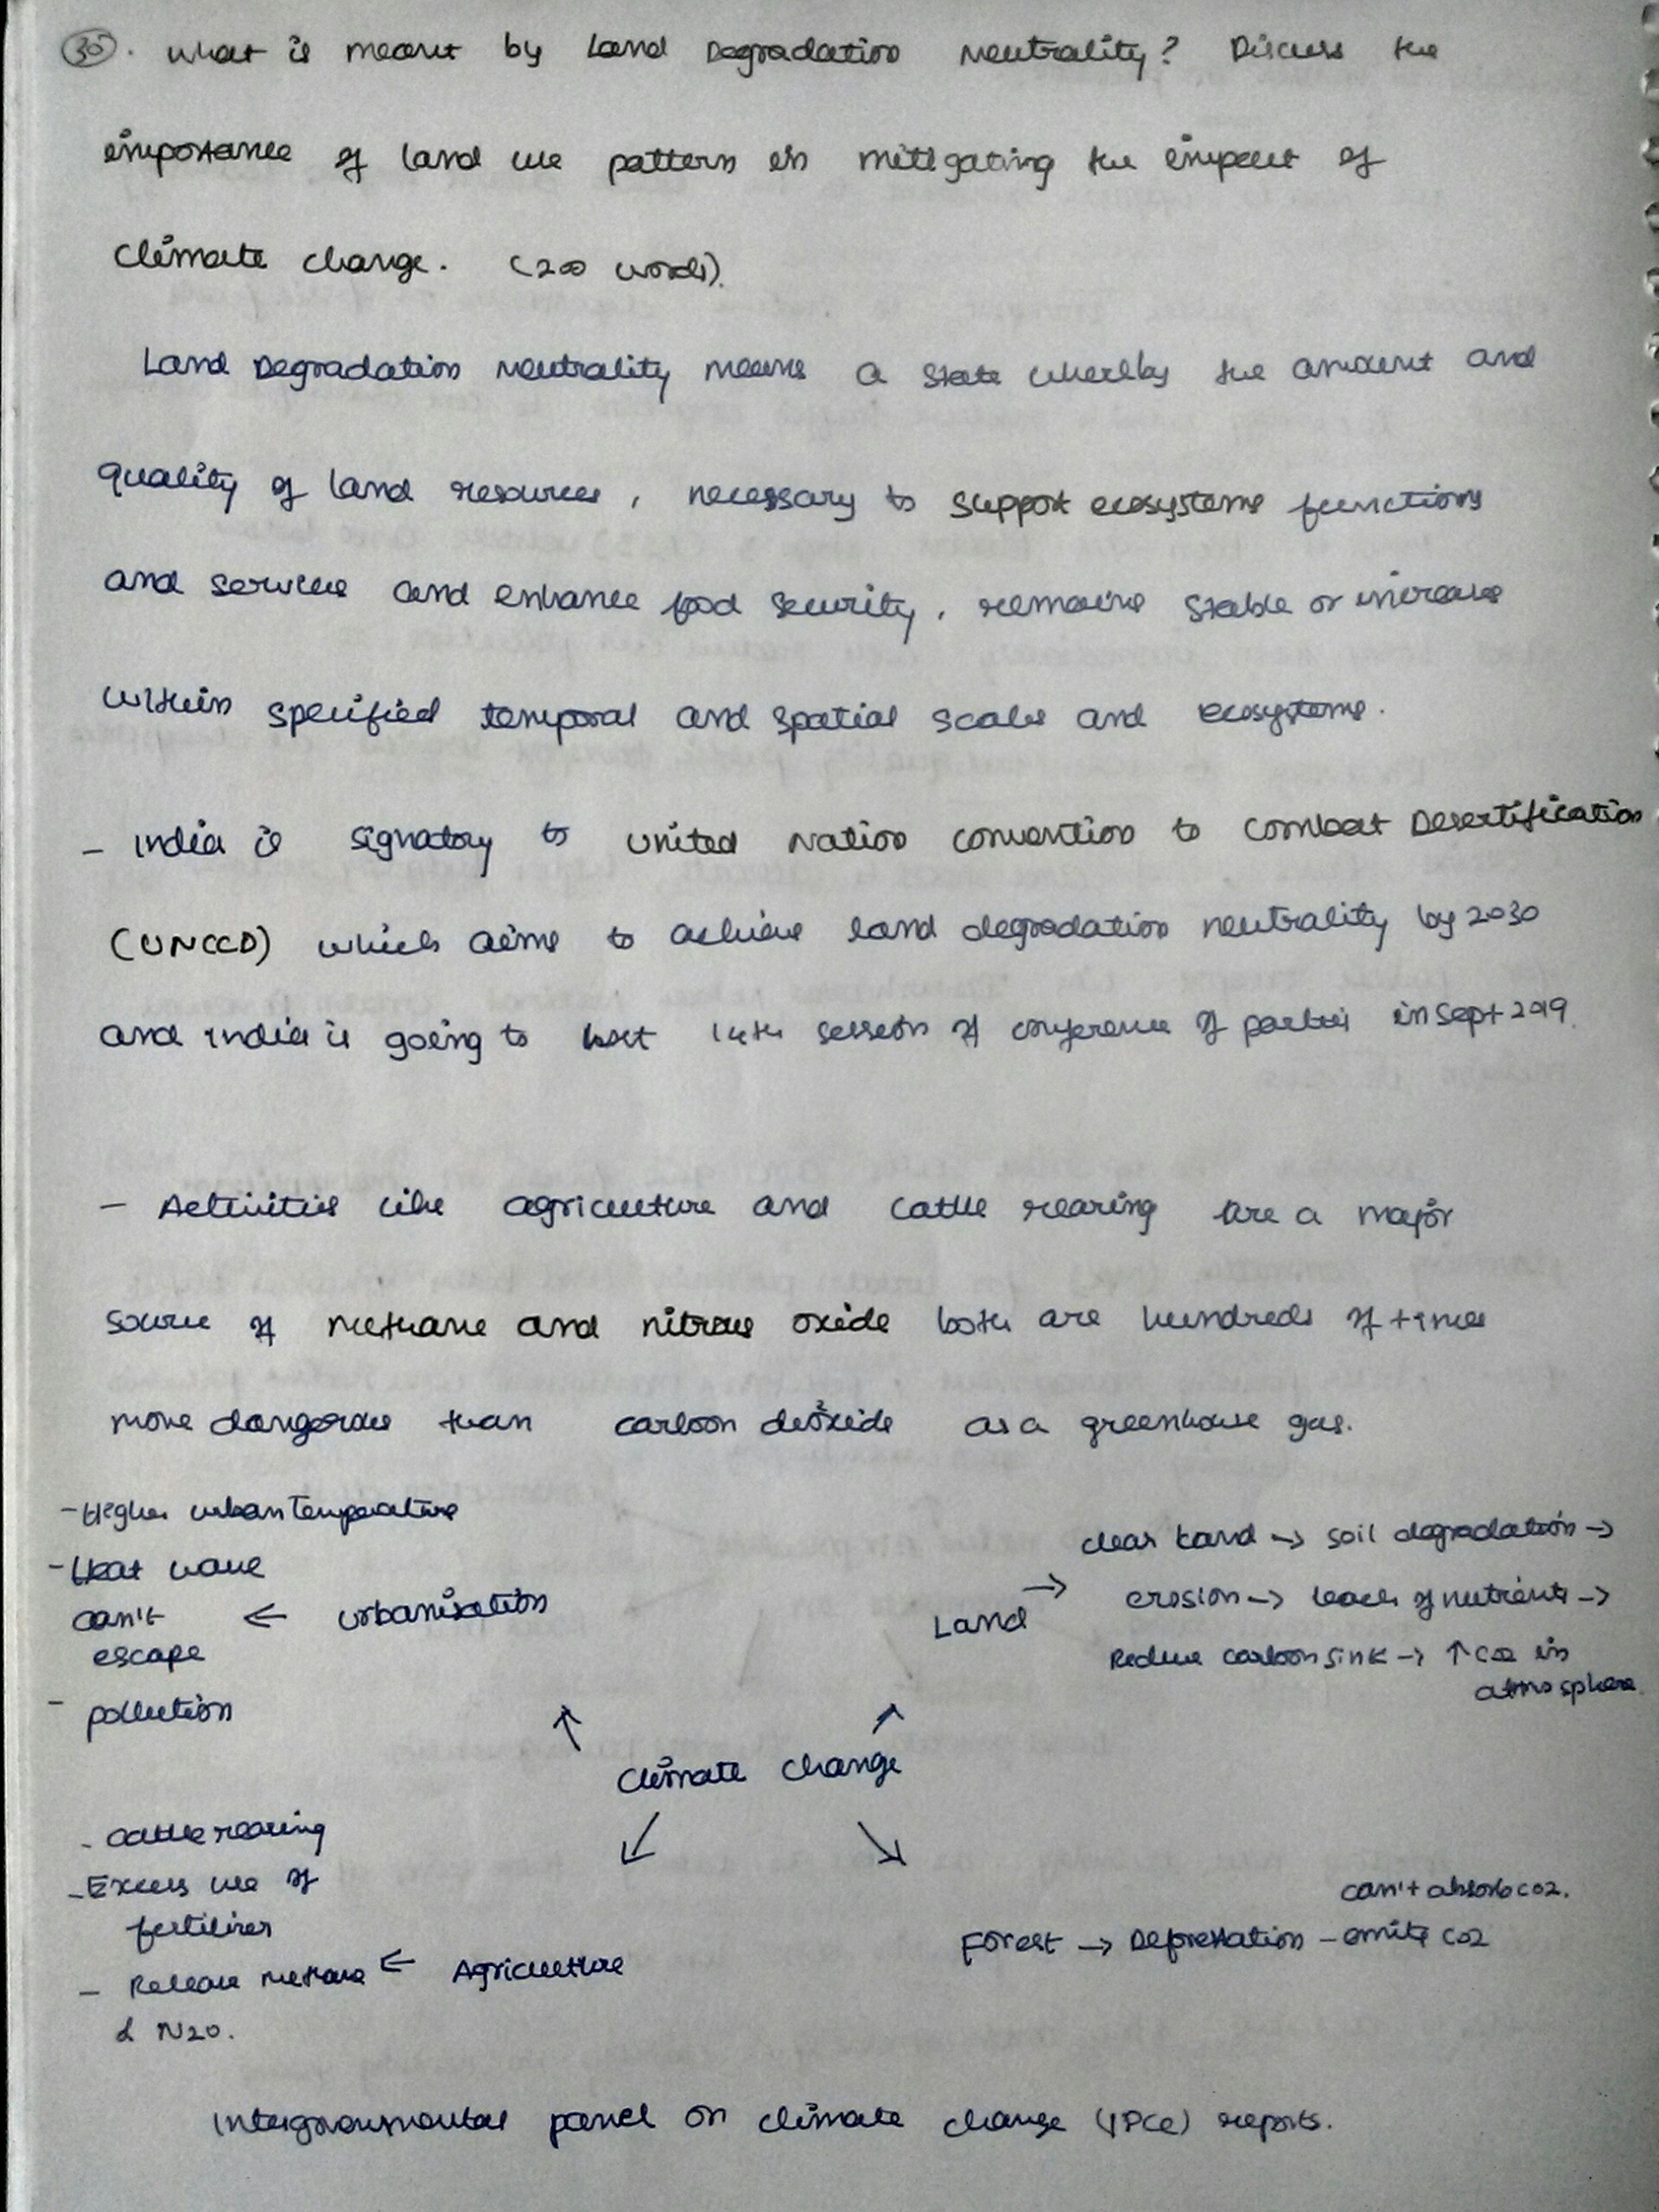 30. What is meant by Land Degradation Neutrality? Discuss the
importance of land use pattern in mitigating the impact of
climate change. (200 words).
Land Degradation Neutrality means a state whereby the amount and
quality of land resources, necessary to support ecosystems functions
and services and enhance food security, remains stable or increase
within specified temporal and spatial scales and ecosystems.
- India is signatory to United Nation Convention to Combat Desertification
(UNCCD) which aims to achieve land degradation neutrality by 2030
and India is going to host 14th session of conference of parties in Sept 2019.
- Activities like agriculture and cattle rearing are a major
source of methane and nitrous oxide both are hundreds of times
more dangerous than carbon dioxide as a greenhouse gas.
- Higher urban Temperature
- Heat wave
can't ← urbanisation
escape
- pollution
clear land → soil degradation →
Land → erosion → leach of nutrients →
Reduce carbon sink → ↑ CO2 in
atmosphere.
↑ ↗
climate change
↙ ↘
- cattle rearing
- Excess use of
fertilizer
- Release methane ← Agriculture
& N2O.
can't absorb CO2.
Forest → Deforestation - emits CO2
Intergovernmental panel on climate change (IPCC) reports.